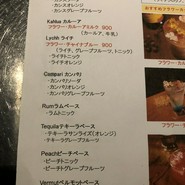 ・カシスオレンジ
・カシスグレープフルーツ
Kahlua カルーア
フラワー・カルーアミルク 900
(カルーア、牛乳)
Lychh ライチ
フラワー・チャイナブルー 900
(ライチ、グレープフルーツ、トニック)
・ライチトニック
・ライチオレンジ
・ライチグレープフルーツ
Campari カンパリ
・カンパリソーダ
・カンパリオレンジ
・カンパリグレープフルーツ
Rumラムベース
・ラムトニック
Tequilaテキーラベース
・テキーラサンライズ(オレンジ)
・テキーラグレープフルーツ
Peachピーチベース
・ピーチトニック
・ピーチグレープフルーツ
Vermutベルモットベース
おすすめフラワーカ